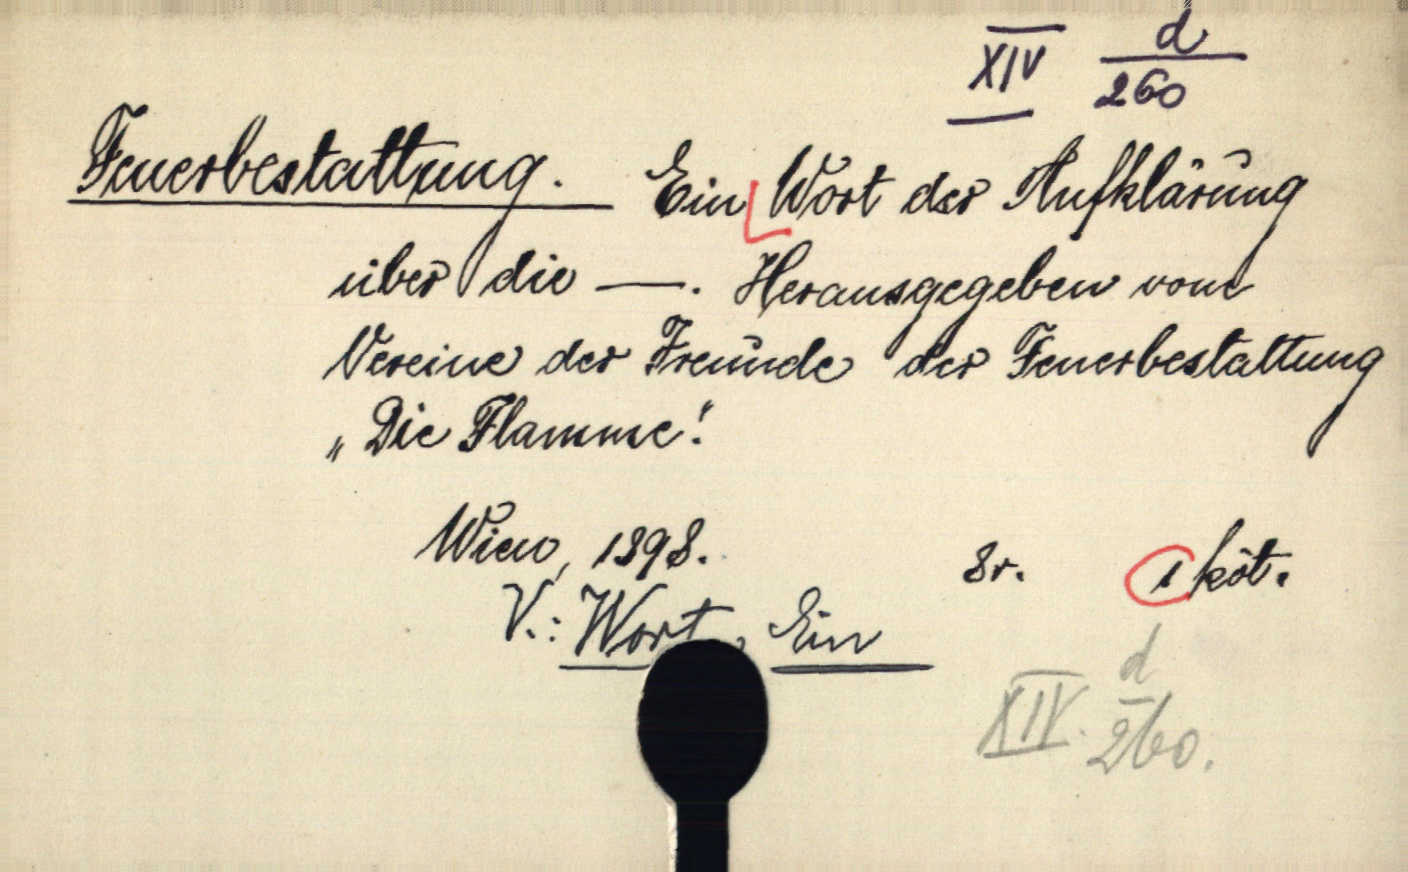 XIV d/260
Feuerbestattung. Ein Wort der Aufklärung
über die —. Herausgegeben vom
Vereine der Freunde der Feuerbestattung
„Die Flamme“.
Wien, 1898. 8r. 1 köt.
V.: Wort, Ein
XIV. d/260.